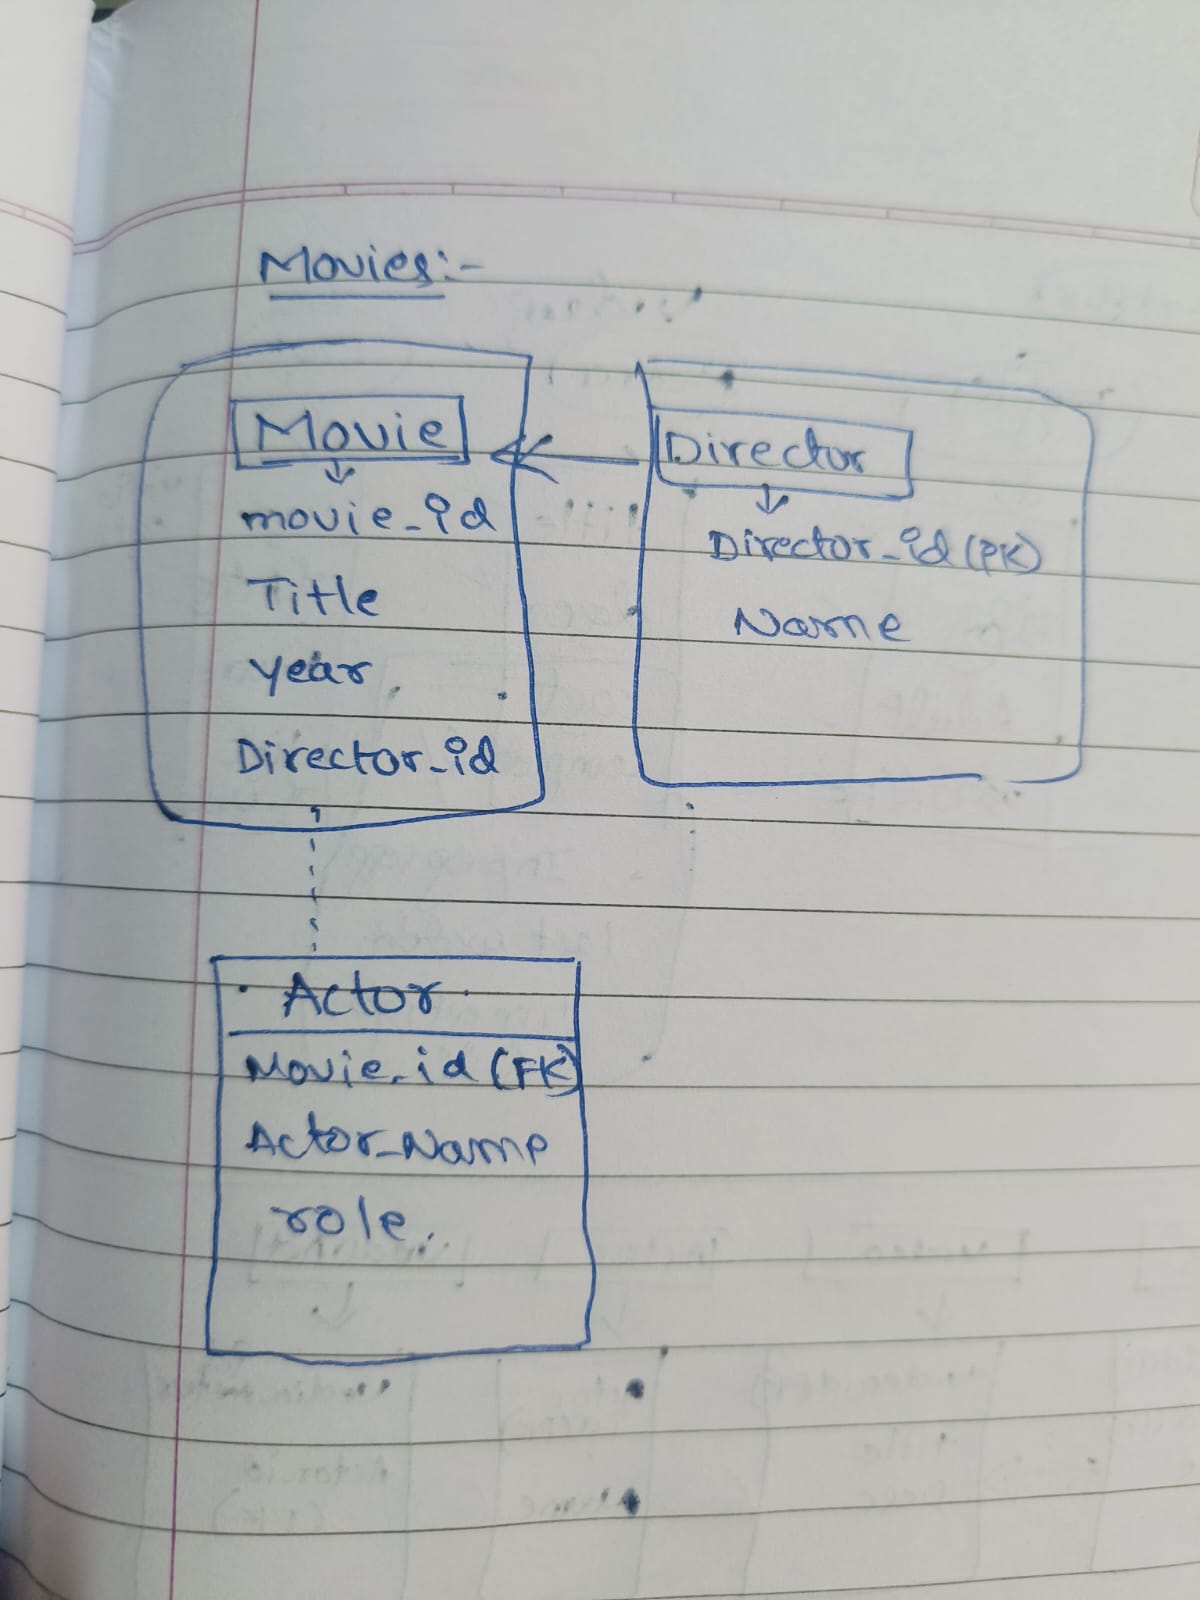 Movies:-
Movie
movie_id
Title
year
Director_id
Director
Director_id (PK)
Name
Actor
Movie_id (FK)
Actor_Name
role